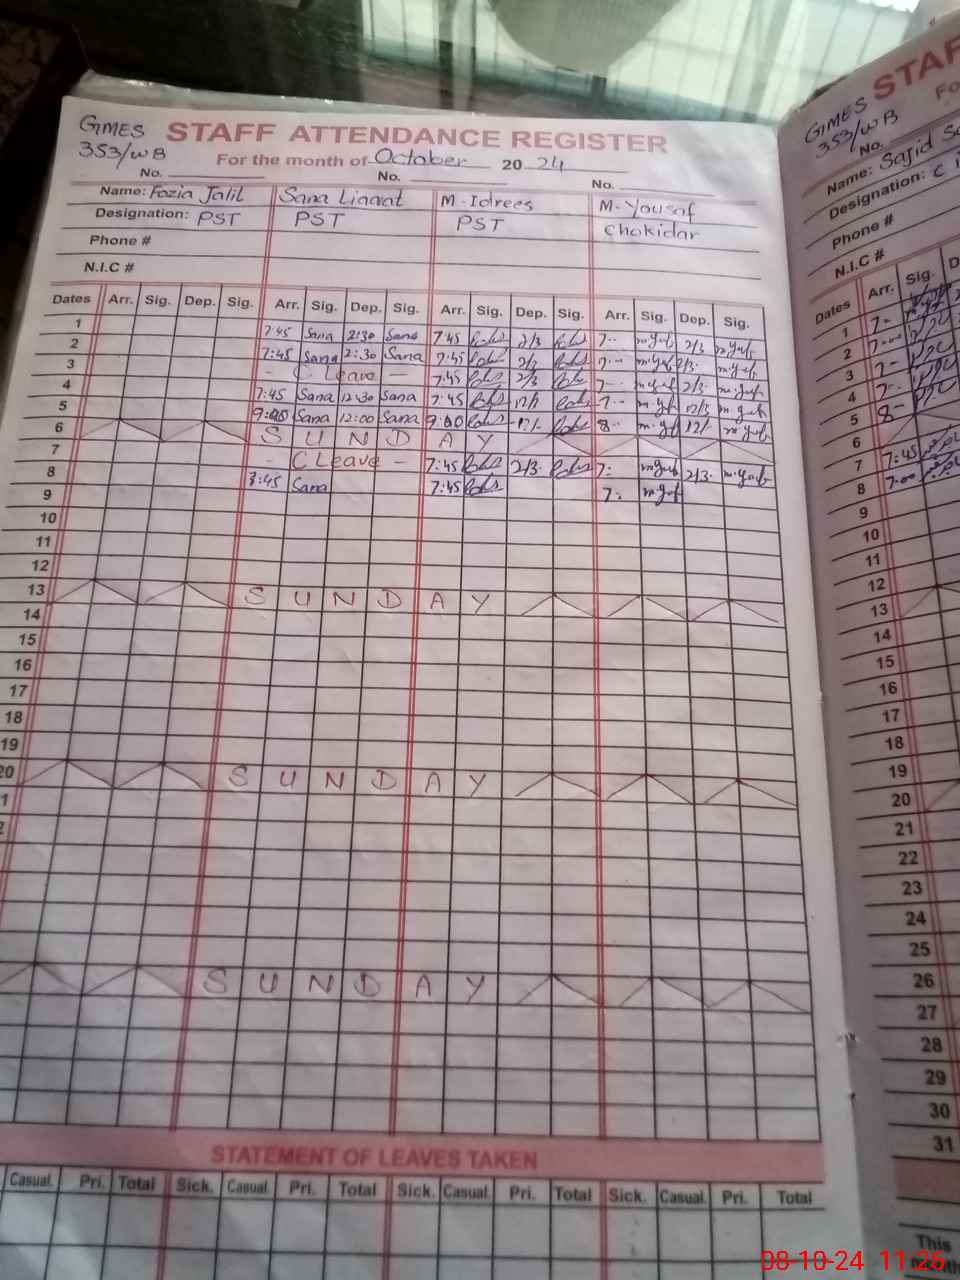 GIMES
353/WB
STAFF ATTENDANCE REGISTER
For the month of October 2024
No. No. No.
Name: Fozia Jalil Sana Liaqat M. Idrees M. Yousaf
Designation: PST PST PST Chokidar
Phone #
N.I.C #
Dates Arr. Sig. Dep. Sig. Arr. Sig. Dep. Sig. Arr. Sig. Dep. Sig. Arr. Sig. Dep. Sig.
1 7:45 Sana 2:30 Sana 7:45 2/3 7-- 2/3
2 7:45 Sana 2:30 Sana 7:45 2/3 7-- 2/3
3 - C Leave - 7:45 2/3 7-- 2/3
4 7:45 Sana 12:30 Sana 7:45 12/1 7-- 12/3
5 9:00 Sana 12:00 Sana 9:00 12/- 8- 12/-
6 S U N D A Y
7 - C Leave - 7:45 2/3- 7- 2/3-
8 Sana 7:45 7-
9
10
11
12
13 S U N D A Y
14
15
16
17
18
19
20 S U N D A Y
1
2
S U N D A Y
STATEMENT OF LEAVES TAKEN
Casual. Pri. Total Sick. Casual. Pri. Total Sick. Casual. Pri. Total Sick. Casual. Pri. Total
GIMES
353/WB
STAF
Fo
No.
Name: Sajid
Designation: C
Phone #
N.I.C #
Dates Arr. Sig. D
1 7-
2 7--
3 7-
4 7-
5 8-
6
7 7:45
8 7:00
9
10
11
12
13
14
15
16
17
18
19
20
21
22
23
24
25
26
27
28
29
30
31
This
month
08-10-24 11:26